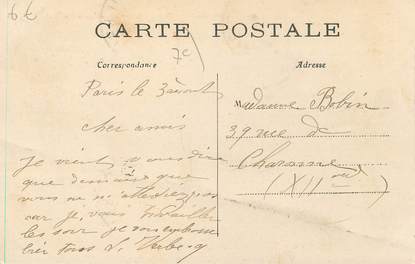 6 €
CARTE POSTALE
7e
Correspondance
Adresse
Paris le 3 aout
cher amis
Je vient vous dire
que demain que
vous ne
car je vais travailler
les soir je vous embrasse
bien tous
Madame Bobin
39 rue de
Charonne
(XII